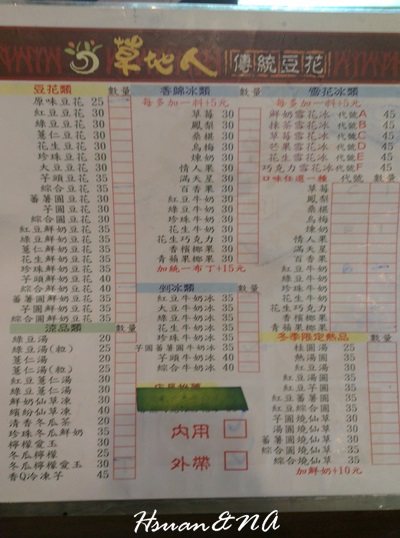 草地人 傳統豆花
豆花類 數量
原味豆花 25
紅豆豆花 30
綠豆豆花 30
薏仁豆花 30
花生豆花 30
珍珠豆花 30
大豆豆花 30
芋頭豆花 35
綜合豆花 35
蕃薯圓豆花 30
芋圓豆花 30
綜合圓豆花 30
紅豆鮮奶豆花 35
綠豆鮮奶豆花 35
薏仁鮮奶豆花 35
花生鮮奶豆花 35
珍珠鮮奶豆花 35
芋頭鮮奶豆花 40
綜合鮮奶豆花 40
蕃薯圓鮮奶豆花 35
芋圓鮮奶豆花 35
綜合圓鮮奶豆花 35
涼品類 數量
綠豆湯 20
綠豆湯(粒) 25
薏仁湯 20
薏仁湯(粒) 25
紅豆薏仁湯 30
綠豆薏仁湯 30
鮮奶仙草凍 30
繽紛仙草凍 40
清香冬瓜茶 20
珍珠冬瓜鮮奶 35
檸檬愛玉 30
冬瓜檸檬 25
冬瓜檸檬愛玉 30
香Q冷凍芋 45
香綿冰類 數量
每多加一料+5元
草莓 30
鳳梨 30
桑椹 30
烏梅 30
煉奶 30
情人果 30
滿天星 30
百香果 30
紅豆牛奶 30
綠豆牛奶 30
花生牛奶 30
珍珠牛奶 30
花生巧克力 30
香檳椰果 30
青蘋果椰果 30
加統一布丁+15元
剉冰類 數量
紅豆牛奶冰 35
大豆牛奶冰 35
綠豆牛奶冰 35
花生牛奶冰 35
珍珠牛奶冰 35
芋圓蕃薯圓牛奶冰 35
芋頭牛奶冰 40
綜合牛奶冰 40
內用
外帶
雪花冰類 數量
每多加一料+5元
鮮奶雪花冰 代號A 45
抹茶雪花冰 代號B 45
草莓雪花冰 代號C 45
芒果雪花冰 代號D 45
花生雪花冰 代號E 45
巧克力雪花冰 代號F 45
口味任選一種 代號 數量
草莓
鳳梨
桑椹
烏梅
煉奶
情人果
滿天星
百香果
紅豆牛奶
綠豆牛奶
珍珠牛奶
花生牛奶
花生巧克力
香檳椰果
青蘋果椰果
冬季限定熱品 數量
桂圓湯 25
熱湯圓 35
紅豆湯圓 35
紅豆芋圓 35
紅豆蕃薯圓 35
紅豆綜合圓 35
燒仙草 35
湯圓燒仙草 35
蕃薯圓燒仙草 35
芋圓燒仙草 35
綜合圓燒仙草 35
綜合燒仙草 35
加鮮奶+10元
Hsuan&NA